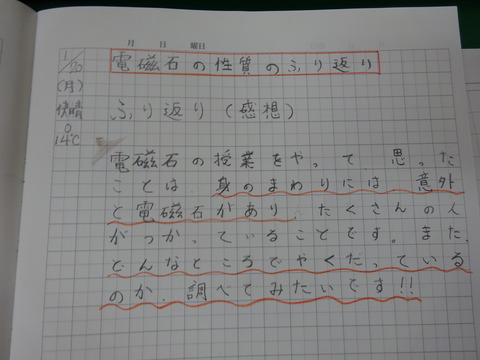 月 日 曜日
1/20
(月)
快晴
14℃
電磁石の性質のふり返り
ふり返り(感想)
電磁石の授業をやって思った
ことは、身のまわりには意外
と電磁石があり、たくさんの人
がつかっていることです。また、
どんなところでやくだっている
のか、調べてみたいです!!